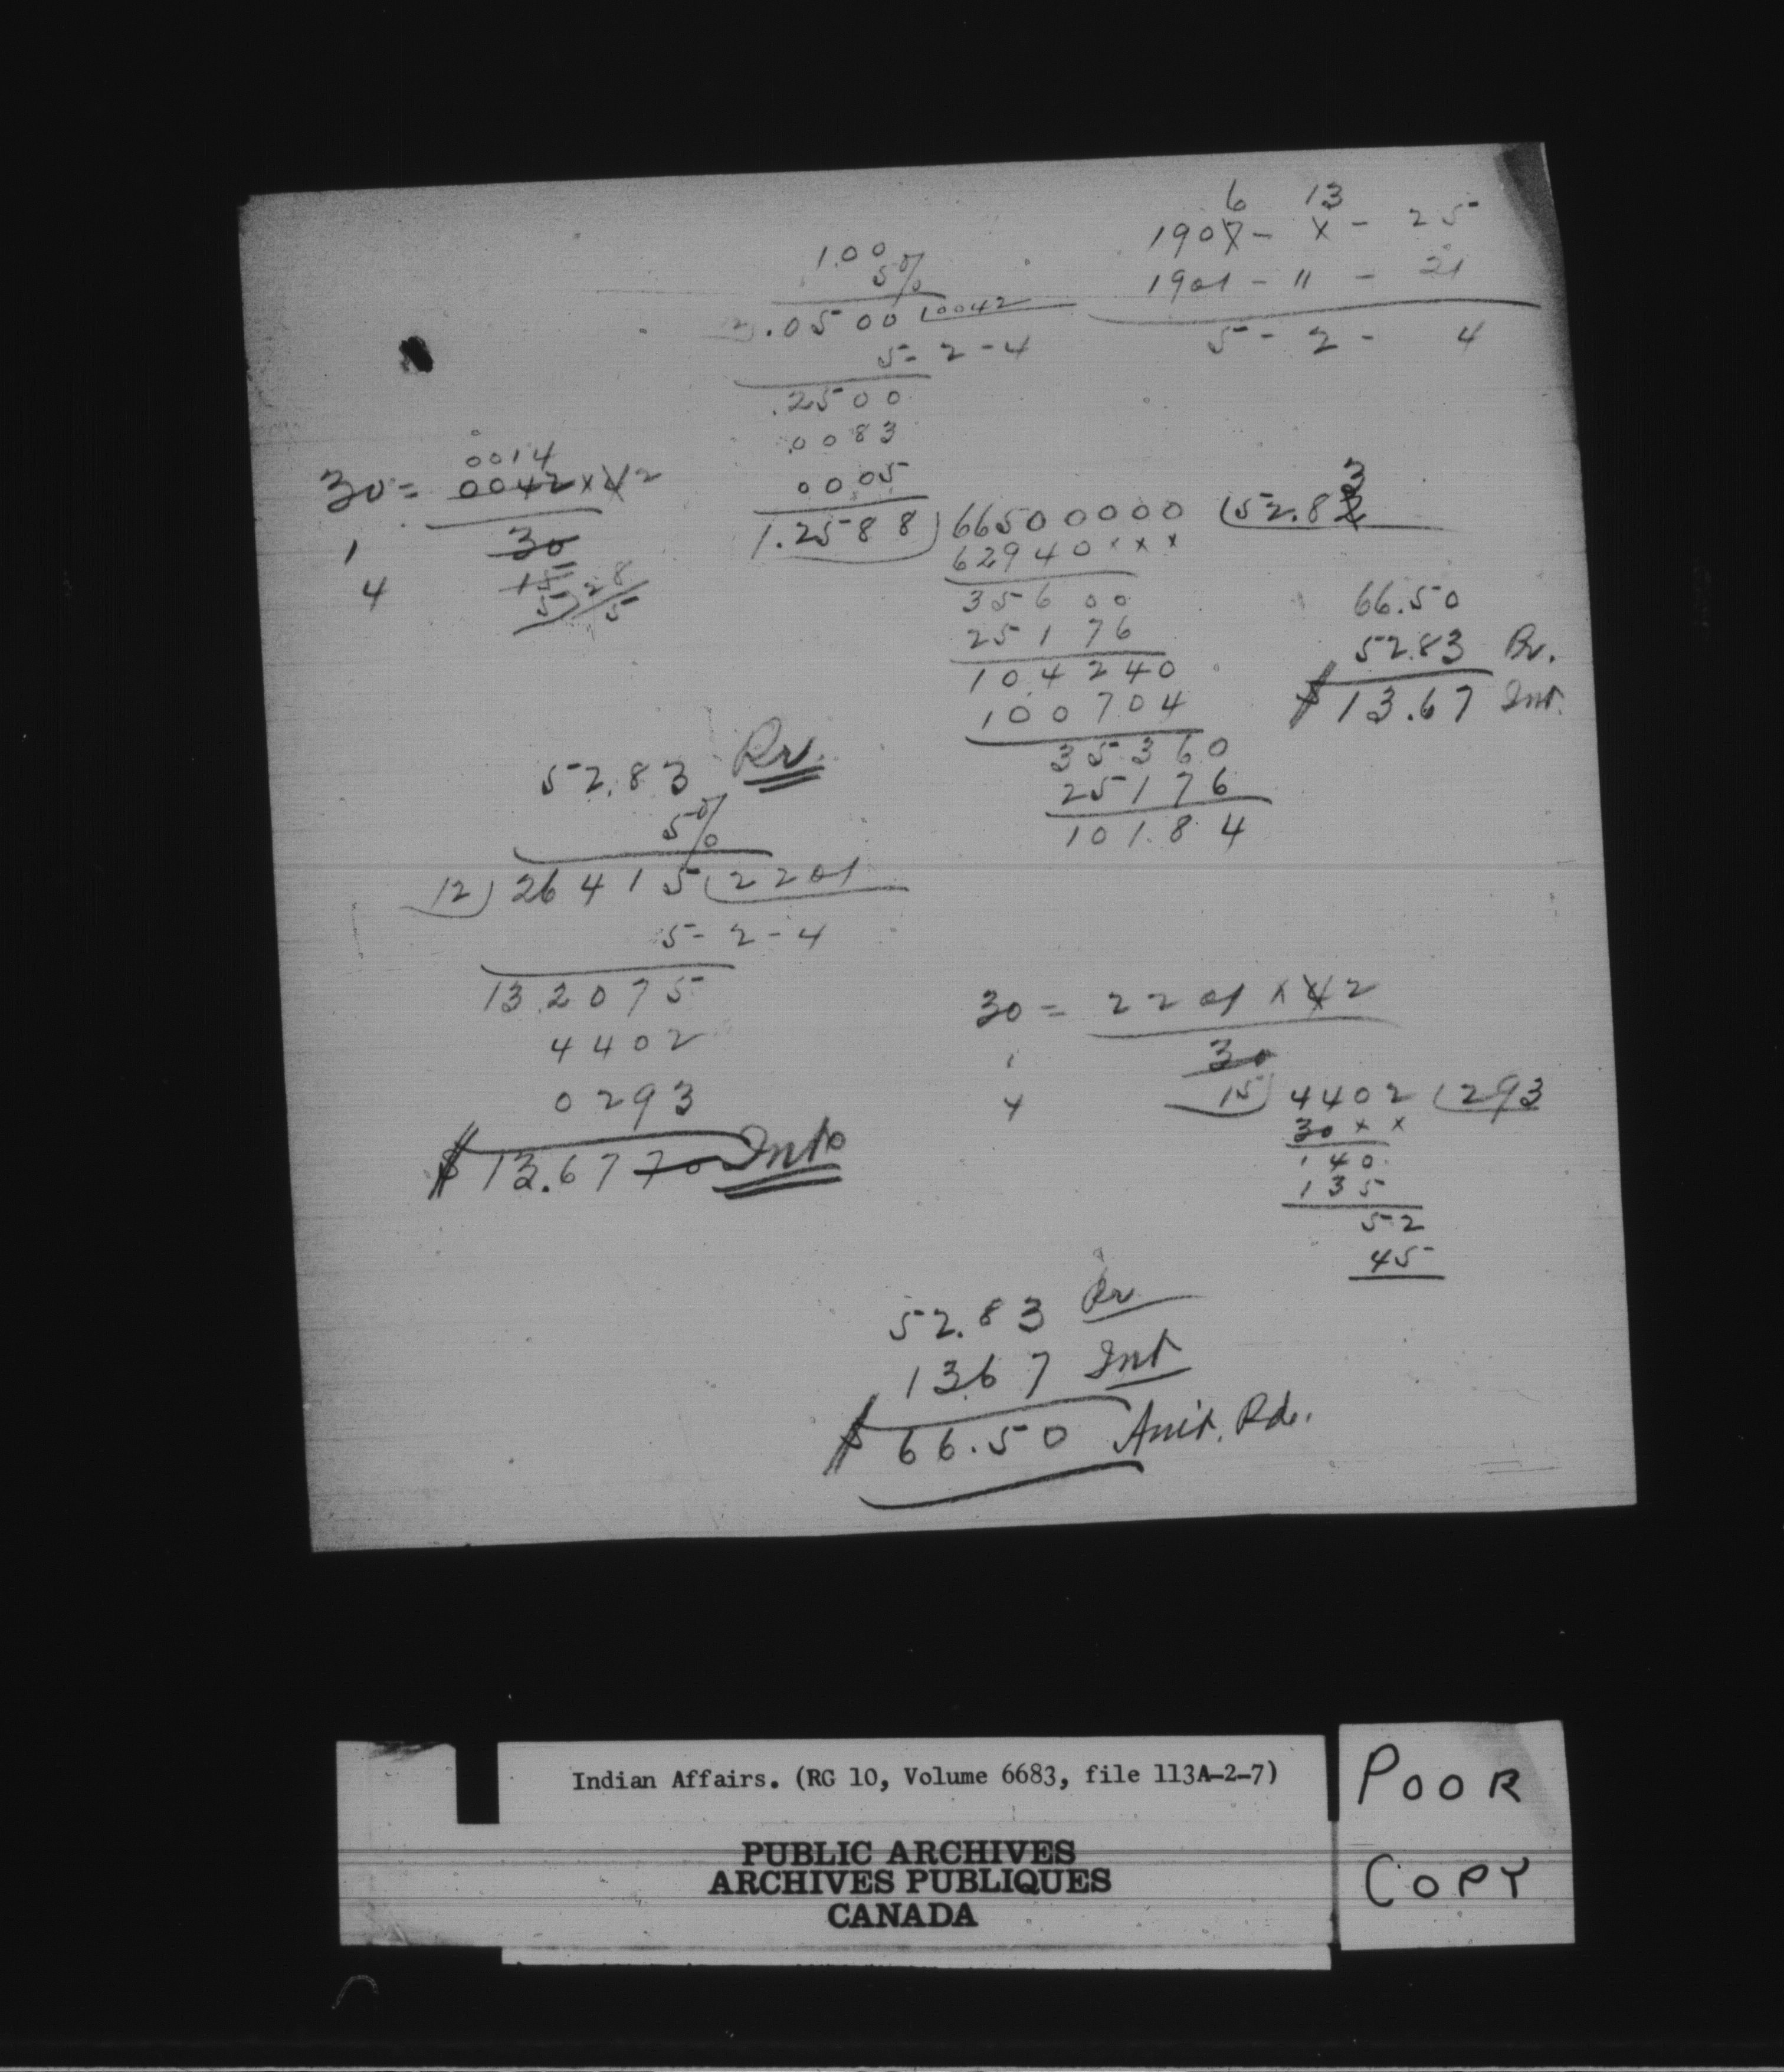 6 13
1907 - X - 25
1901 - 11 - 21
5 - 2 - 4
1.00
5%
12) .0500 (0042
5 - 2 - 4
.2500
.0083
0005
1.2588) 66500000 (52.83
62940xxx
35600
25176
104240
100704
35360
25176
10184
0014
30 = 0042 x 42
1 30
4 15
5) 28/5
66.50
52.83 Pr.
$13.67 Int.
52.83 Pr.
5%
12) 26415 (2201
5 - 2 - 4
13.2075
4402
0293
$13.6770 Int
30 = 2201 x 42
1 30
4 15) 4402 (293
30 x x
140
135
52
45
52.83 Pr
13.67 Int
$66.50 Amt. Pd.
Indian Affairs. (RG 10, Volume 6683, file 113A-2-7)
PUBLIC ARCHIVES
ARCHIVES PUBLIQUES
CANADA
POOR
COPY